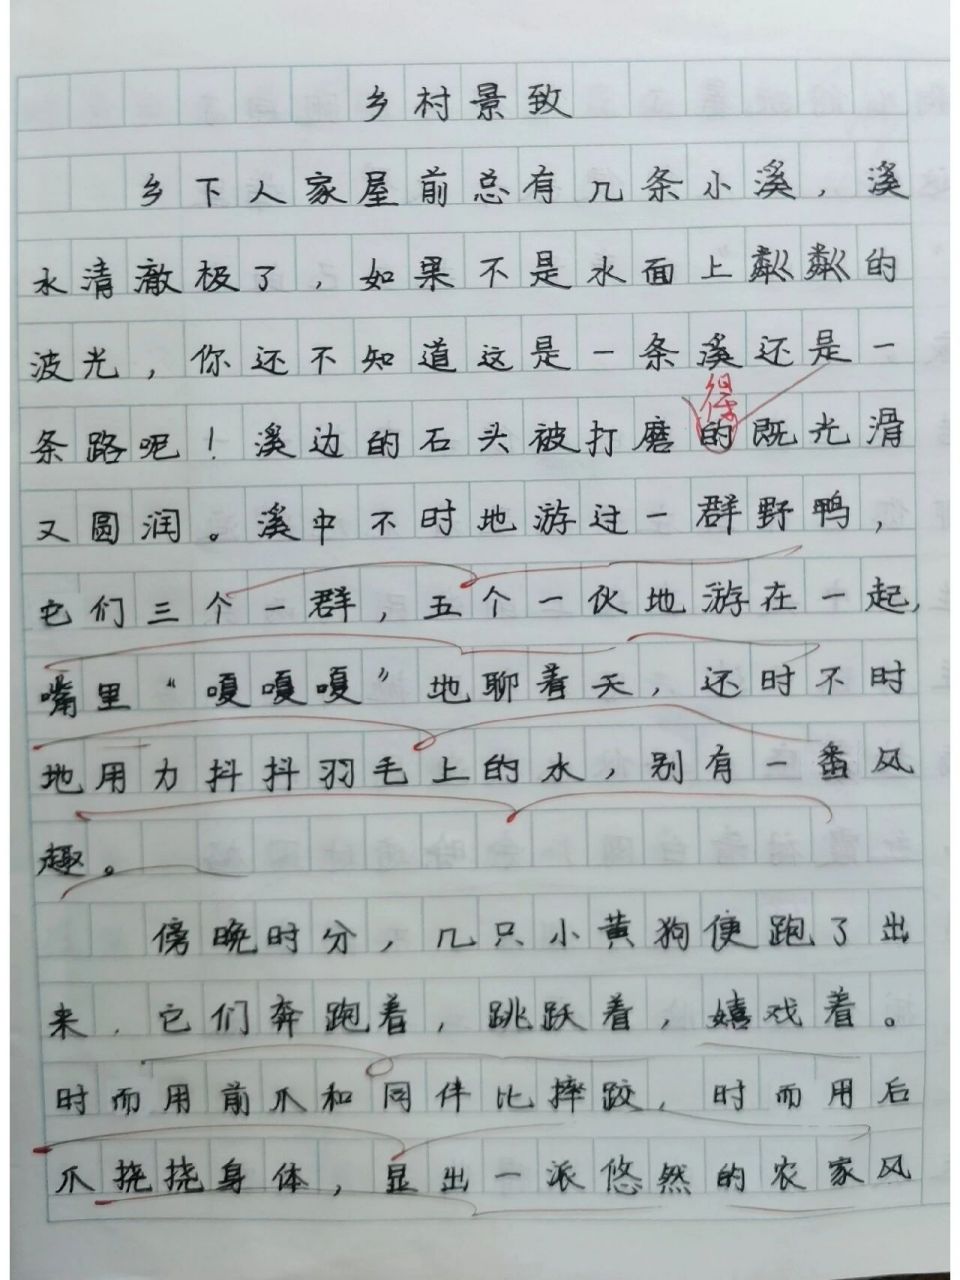 乡村景致
乡下人家屋前总有几条小溪，溪
水清澈极了，如果不是水面上粼粼的
波光，你还不知道这是一条溪还是一
得
条路呢！溪边的石头被打磨的既光滑
又圆润。溪中不时地游过一群野鸭，
它们三个一群，五个一伙地游在一起，
嘴里“嘎嘎嘎”地聊着天，还时不时
地用力抖抖羽毛上的水，别有一番风
趣。
傍晚时分，几只小黄狗便跑了出
来，它们奔跑着，跳跃着，嬉戏着。
时而用前爪和同伴比摔跤，时而用后
爪挠挠身体，显出一派悠然的农家风